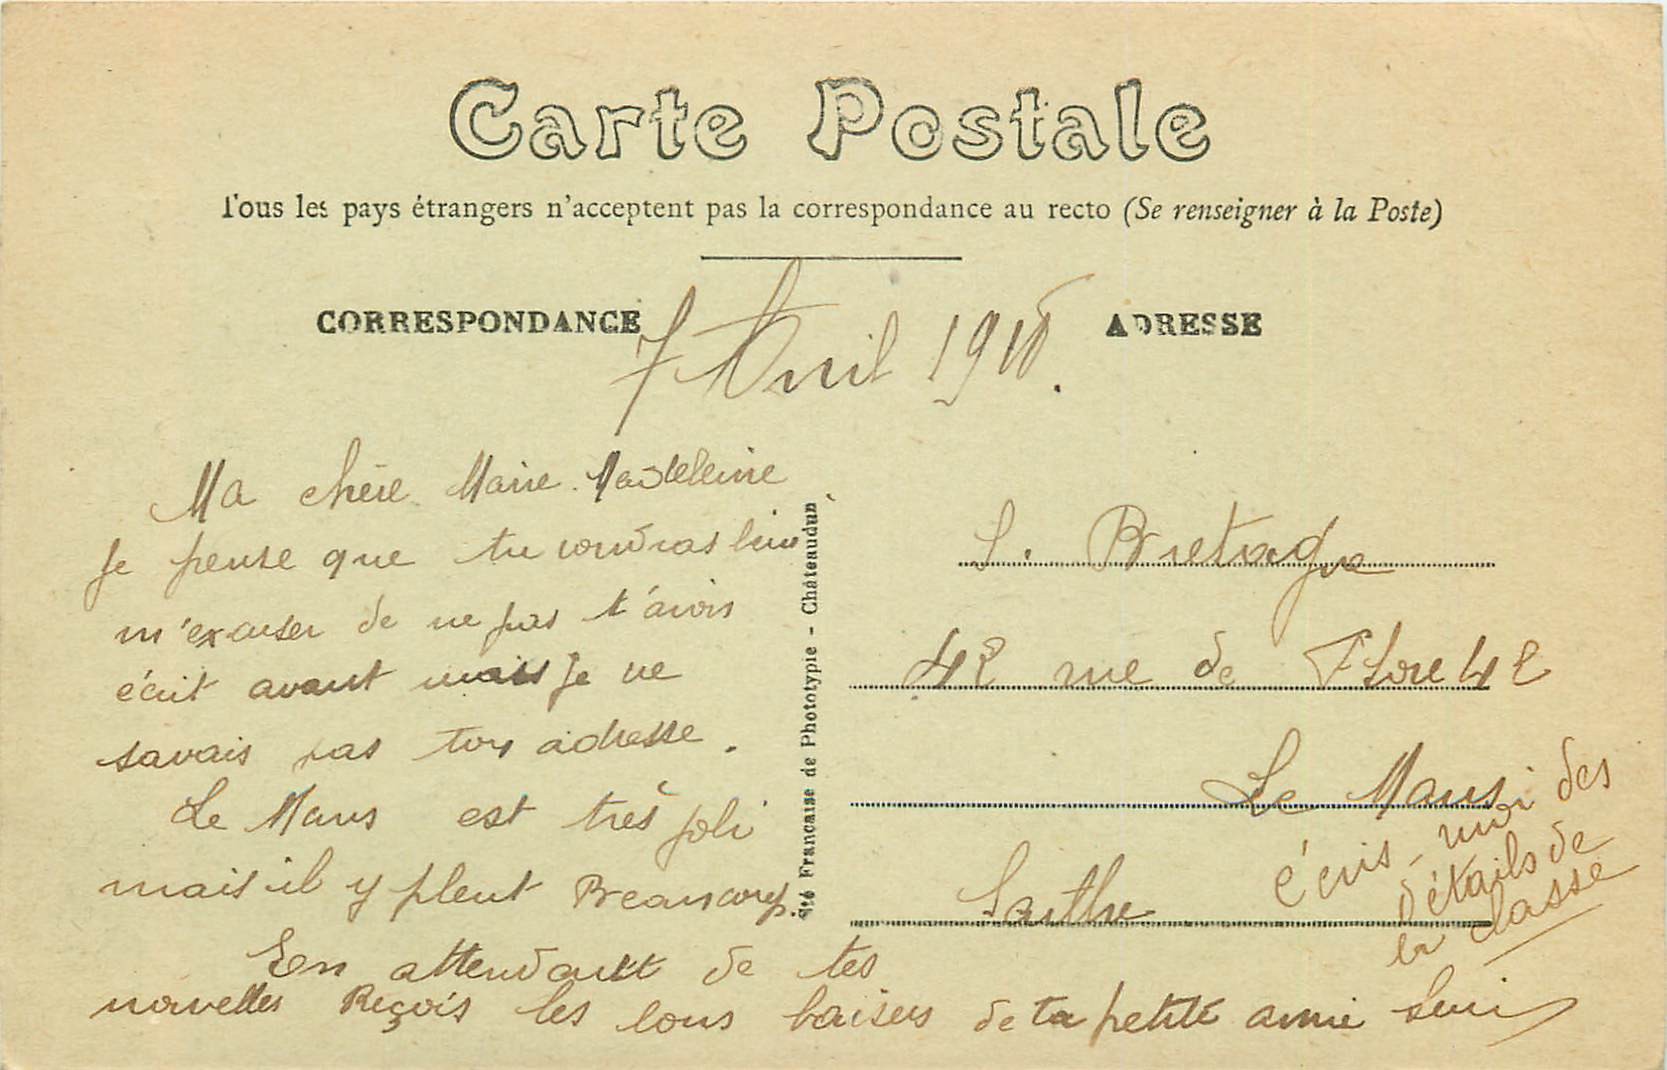 Carte Postale
Tous les pays étrangers n'acceptent pas la correspondance au recto (Se renseigner à la Poste)
CORRESPONDANCE
ADRESSE
7 Avril 1918.
Ma chère Marie Madeleine
Je pense que tu voudras bien
m'excuser de ne pas t'avois
écrit avant mais je ne
savais pas ton adresse.
Le Mans est très joli
mais il y pleut Beaucoup.
En attendant de tes
nouvelles Reçois les bons baisers de ta petite amie
Sté Française de Phototypie - Châteaudun
S. Bretagne
42 rue de Flore 42
Le Mans
Sarthe
écris-moi des
détails de
la classe